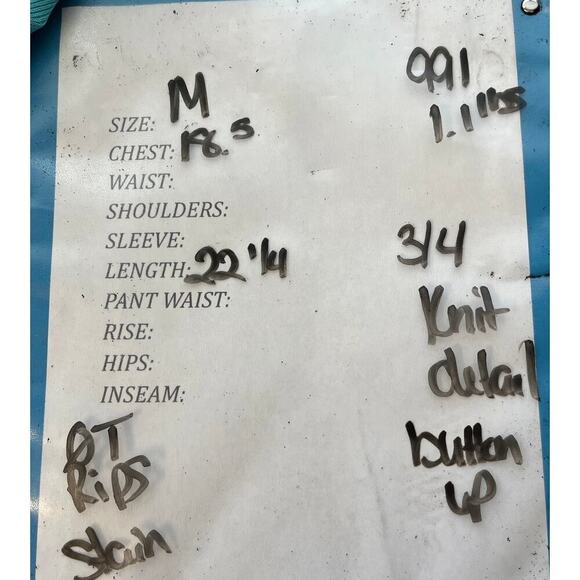 M
991
SIZE:
1.1 lbs
CHEST: 18.5
WAIST:
SHOULDERS:
SLEEVE:
3/4
LENGTH: 22 1/4
PANT WAIST:
Knit
RISE:
HIPS:
detail
INSEAM:
button
up
Rips
Stain